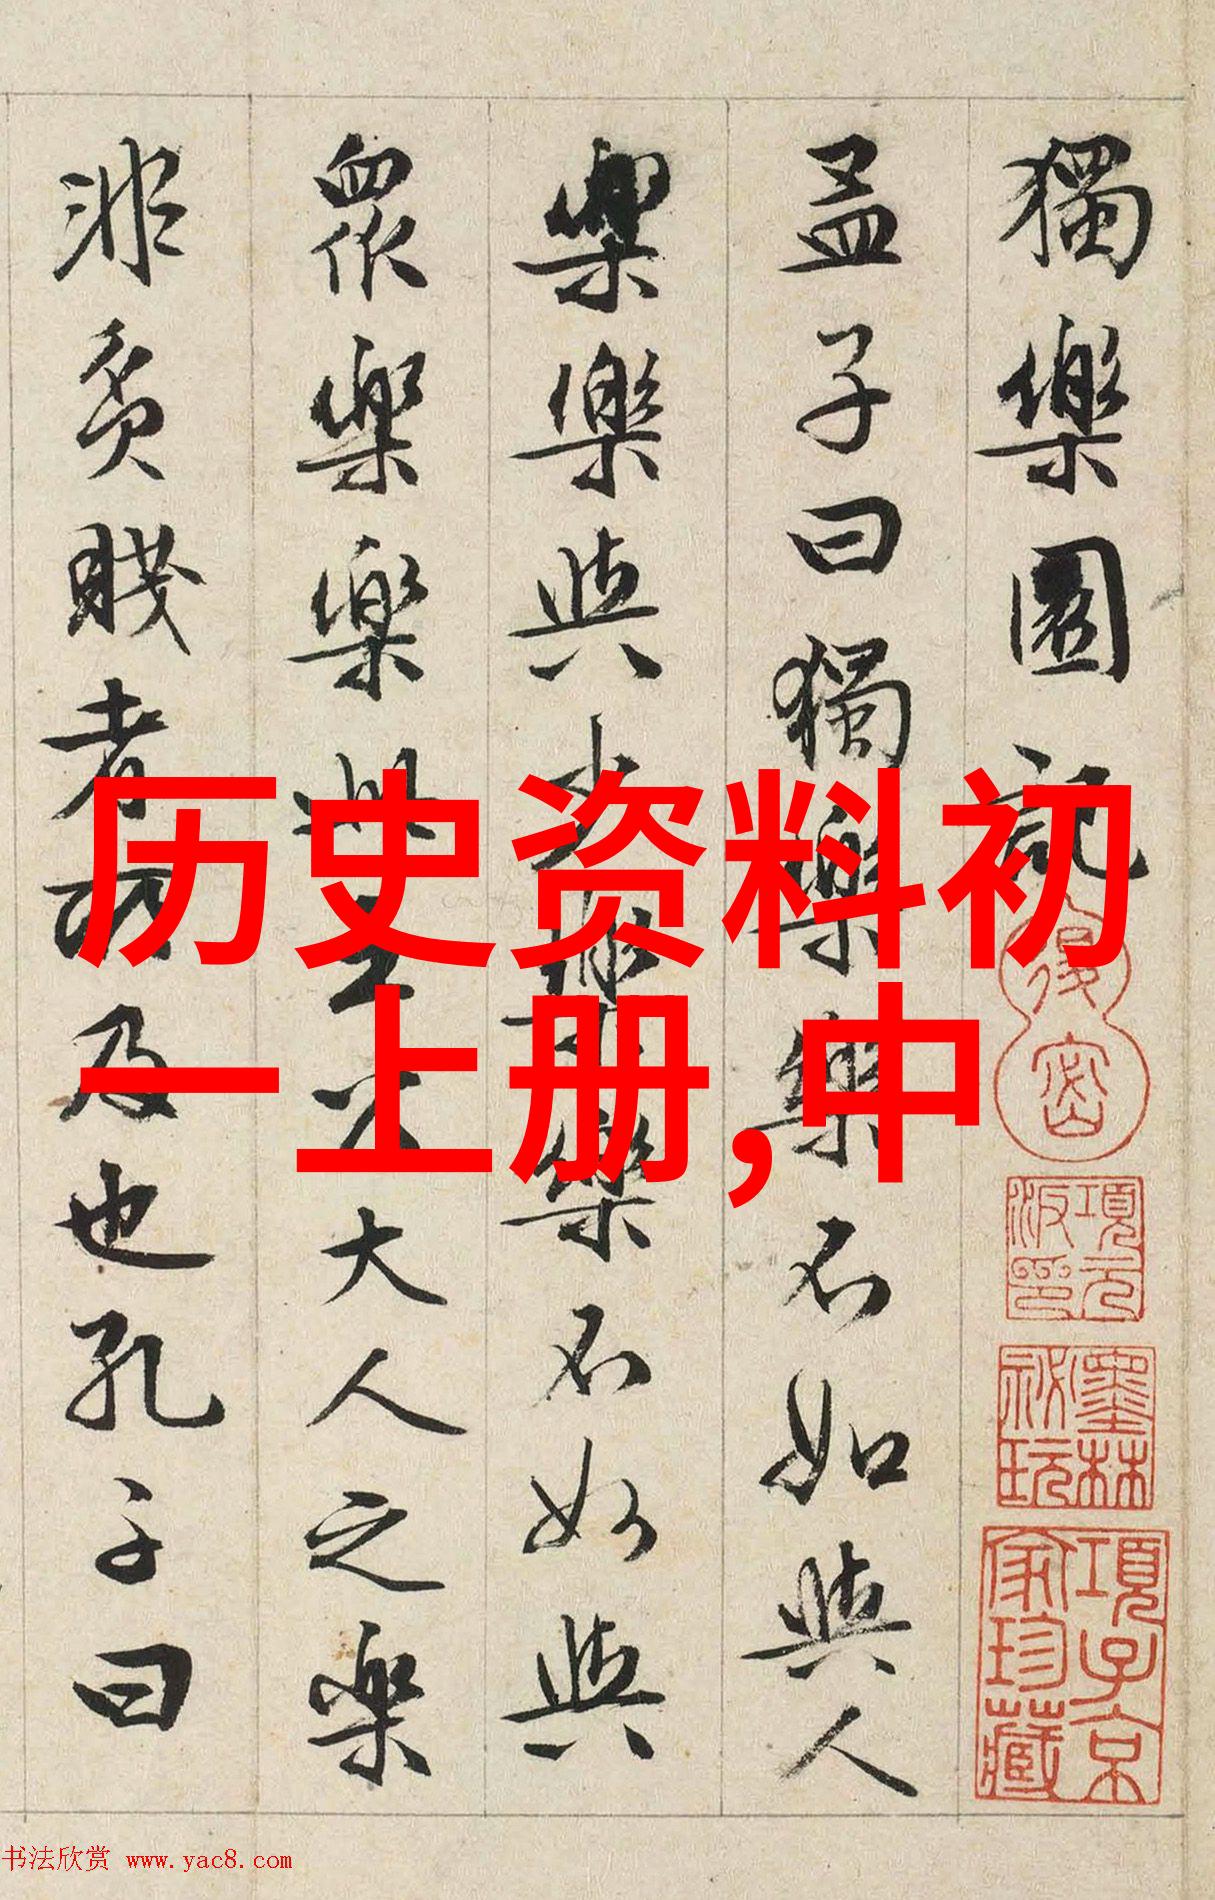 獨樂園記
孟子曰獨樂樂不如與人
樂樂與少樂樂不如與
眾樂樂此王公大人之樂
非貧賤者所及也孔子曰
历史资料初
一上册,中
項元汴印
墨林秘玩
項子京家珍藏
书法欣赏 www.yac8.com